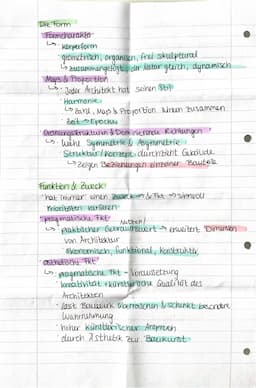 Die Form
Formcharakter
↳ · Körperform
· geometrisch, organisch, frei skulptural
↳ zusammengesetzt, der Natur gleich, dynamisch
Maß & Proportion
↳ · Jeder Architekt hat seinen
· Harmonie
↳ Zahl, Maß & Proportion wirken zusammen
· Zeit → Epoche
Ordnungsstrukturen & Dominierende Richtungen
↳ · Symmetrie & Asymmetrie
· Struktur / Konzept durchzieht Gebäude
↳ zeigen Beziehungen einzelner Bauteile
Funktion & Zweck
· hat immer einen Zweck & Fkt. → sinnvoll
· Prioritäten variieren
pragmatische Fkt.
Nutzen!
↳ · praktischer Gebrauchswert → erweitert Dimension
von Architektur
· ökonomisch, funktional, konstruktiv
ästhetische Fkt
↳ · pragmatische Fkt → Voraussetzung
· Kreativität + künstlerische Qualität des
Architekten
· lässt Bauwerk überraschen & schenkt besondere
Wahrnehmung
· hoher künstlerischer Anspruch
· durch Ästhetik zu Baukunst